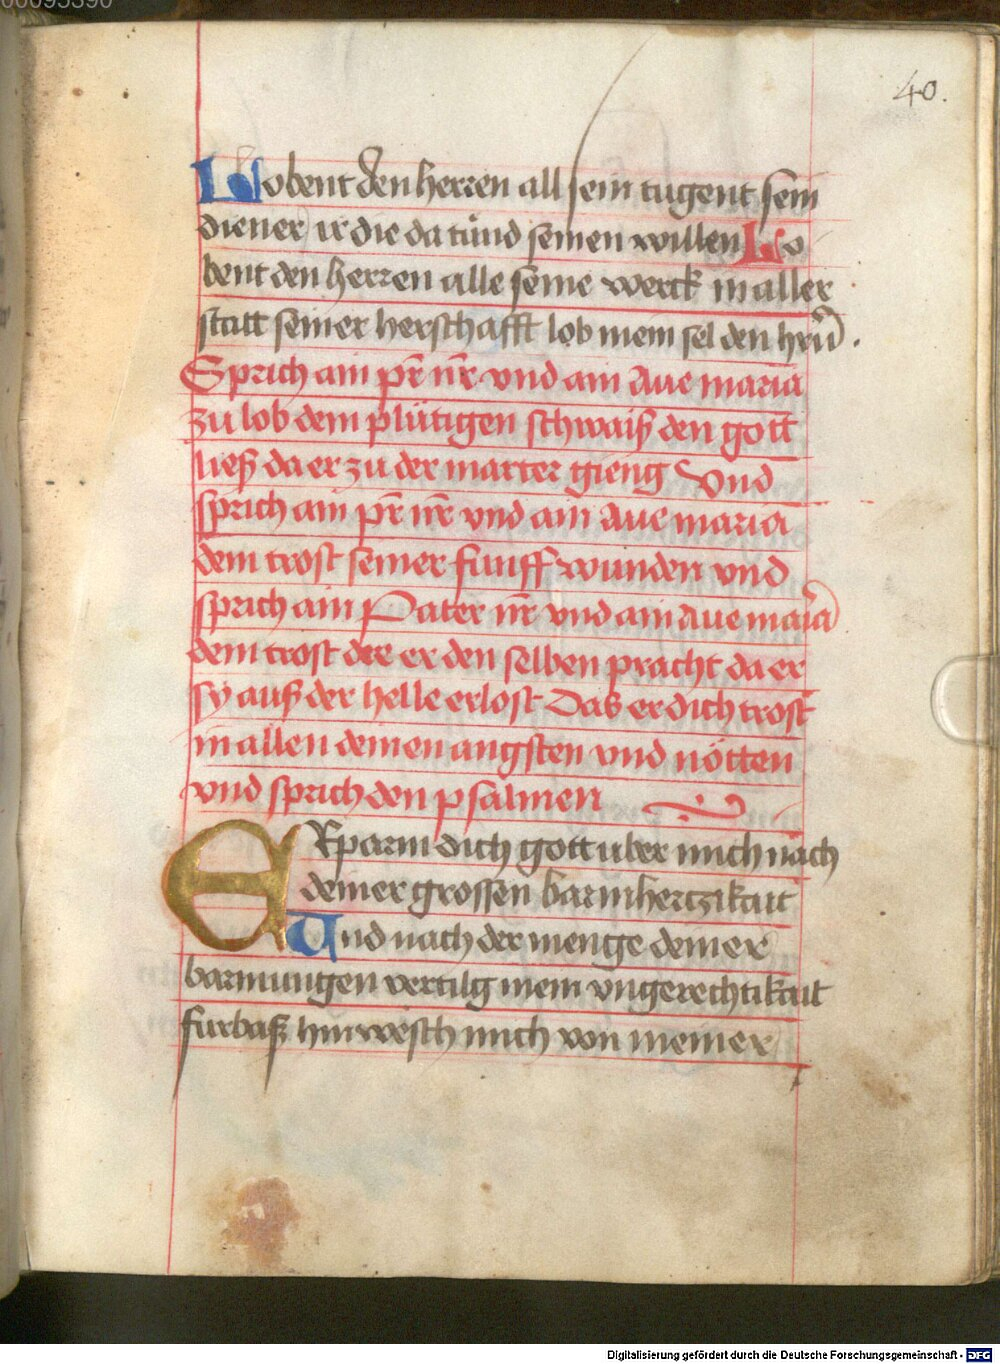 00095390
40.
Lobent den herren all sein tugent sein
diener ir die da tünd seinen willen Lo
bent den herren alle seine werck in aller
statt seiner herschafft lob mein sel den hrn̄.
Sprich ain pr̄ nr̄ vnd ain Aue maria
zu lob dem plütigen schwaiß den gott
ließ da er zu der marter gieng Vnd
sprich ain pr̄ nr̄ vnd ain Aue maria
dem trost seiner funff wunden vnd
sprich ain Pater nr̄ vnd ain Aue maīa
dem trost den er den selben pracht da er
sy auß der helle erlost Das er dich trost
in allen deinen angsten vnd nötten
vnd sprich den psalmen
ERparm dich gott uber mich nach
deiner grossen barmhertzikait
Vnd nach der menge deiner
barmungen vertilg mein vngerechtikait
furbaß hin wesch mich von meiner
Digitalisierung gefördert durch die Deutsche Forschungsgemeinschaft - DFG